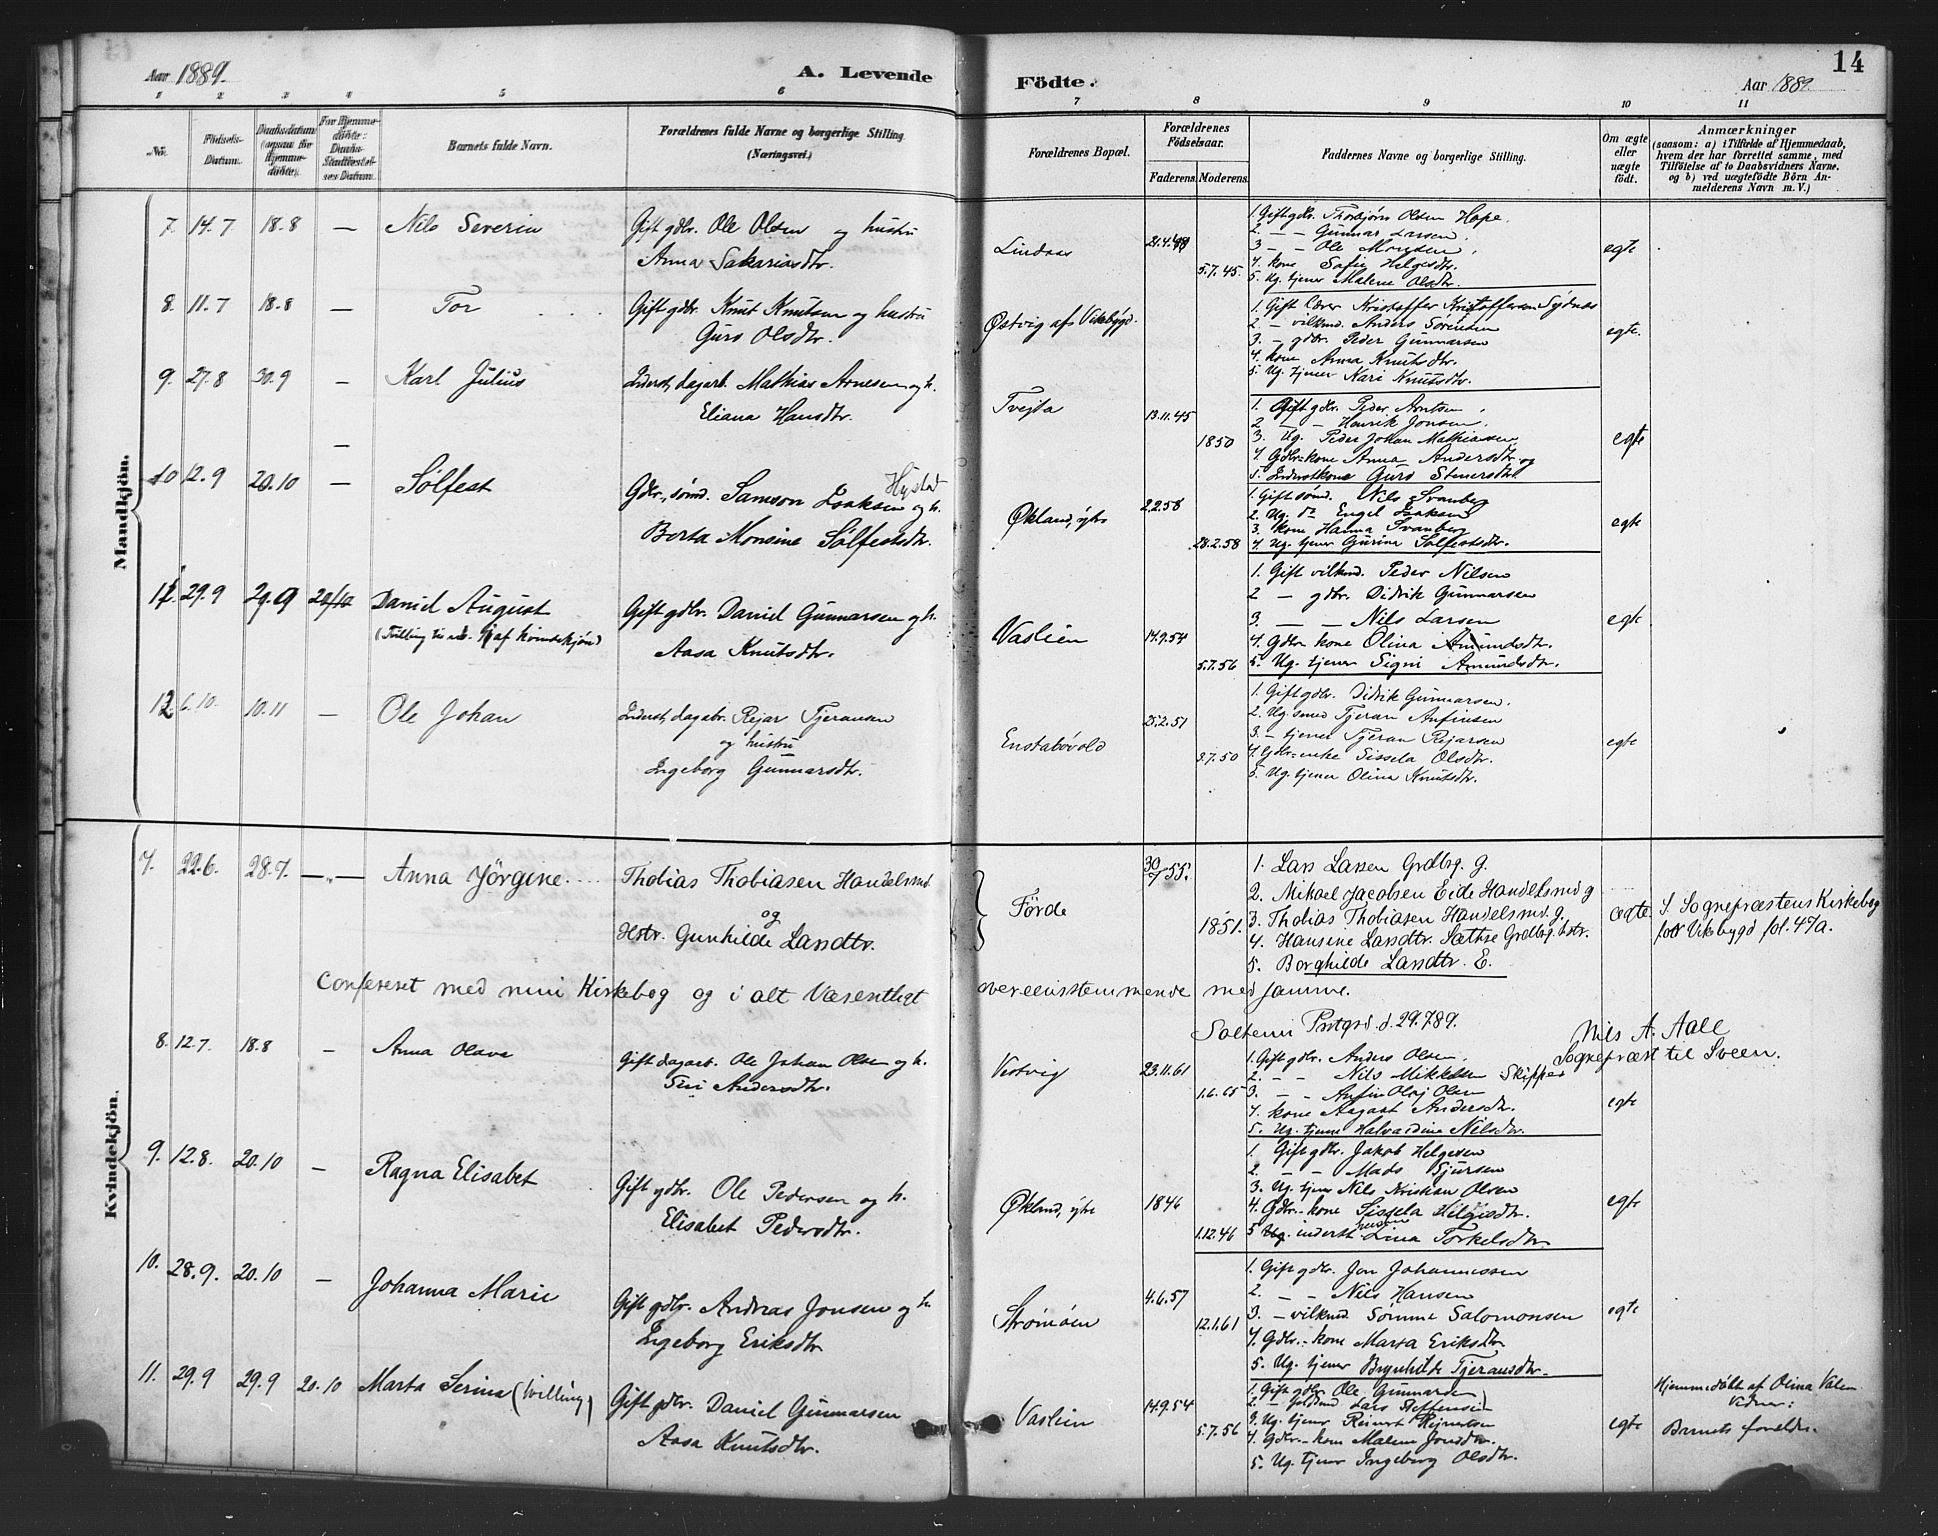 Aar 1889.
A. Levende
Födte.
Aar 1889.
14
1 2 3 4 5 6 7 8 9 10 11
No.
Födsels-Datum.
Daabsdatum (ogsaa for Hjemme-døbte).
For Hjemme-døbte: Daabs Stadfæstel-ses Datum.
Barnets fulde Navn.
Forældrenes fulde Navne og borgerlige Stilling.
(Næringsvei.)
Forældrenes Bopæl.
Forældrenes Födselsaar.
Faderens. Moderens.
Faddernes Navne og borgerlige Stilling.
Om ægte eller uægte födt.
Anmærkninger
(saasom: a) i Tilfælde af Hjemmedaab,
hvem der har forrettet samme, med
Tilföielse af to Daabsvidners Navne,
og b) ved uægtefödte Börn An-
melderens Navn m. V.)
Mandkjön.
7. 14.7 18.8 — Nils Severin
Gift gdbr. Ole Olsen og hustru
Anna Sakariasdtr.
Lindaas
21.4.49
5.7.45.
1. Gift gdbr. Thorbjørn Olsen Hope.
2 — — Gunnar Larsen.
3 — — Ole Monsen.
4. kone Sofie Helgesdtr.
5. Ug. tjener Malene Olsdtr.
egte
8. 11.7 18.8 — Tor
Gift gdbr. Knut Knutsen og hustru
Guro Olsdtr.
Østvig af Vikebygd.
1. Gift Lærer Kristoffer Kristoffersen Sydnes
2. — vilkmd. Anders Sørensen
3. — gdbr. Peder Gunnarsen
4. kone Anna Knutsdtr.
5. Ug. tjener Kari Knutsdtr.
egte.
9. 27.8 30.9 — Karl Julius
Inderst, dagarb. Mathias Arnesen og h.
Eliana Hansdtr.
Tvejta
13.11.45
1850
1. Gift gdbr. Peder Arntsen.
2 — — Henrik Jonsen.
3. Ug. Peder Johan Mathiassen
4. Gdbr-kone Anna Andersdtr og
5. Inderstkone Guro Stenersdtr.
egte
—
10 12.9 20.10 — Sølfest
Hystad
Gdbr., sømd. Samson Isaksen og h.
Berta Monsine Sølfestsdtr.
Økland, ytre
2.2.58
28.2.58
1. Gift sømd. Nils Svanberg
2. Ug. do Engel Isaksen
3. kone Hanna Svanberg
4. Ug. tjener Gurine Sølfestsdtr.
egte
11. 29.9 29.9 20/10 Daniel August
(Tvilling til no. 11 af kvindekjøn)
Gift gdbr. Daniel Gunnarsen og h.
Aasa Knutsdtr.
Vaslien
14.9.54
5.7.56
1. Gift vilkmd. Peder Nilsen
2 — gdbr. Didrik Gunnarsen
3. — — Nils Larsen
4. Gdbr kone Olina Amundsdtr.
5. Ug. tjener Signi Amundsdtr.
egte
12. 6.10. 10.11 — Ole Johan
Inderst, dagabr. Rejar Tjeransen
og hustru
Ingeborg Gunnarsdtr.
Enstabøvold
25.2.51
3.7.50
1. Gift gdbr. Didrik Gunnarsen.
2. Ug. smed Tjeran Anfinsen
3. — tjener Tjeran Rejarsen
4. Gdbr-enke Sissela Olsdtr.
5. Ug. tjener Olina Knutsdtr.
egte
Kvindekjön.
7. 22.6. 28.7. —„— Anna Jörgine.
Thobias Thobiasen Handelsmd.
og
Hstr. Gunhilde Larsdtr.
Förde
30/7 55.
1851.
1. Lars Larsen Grdbg. g.
2. Mikael Jacobsen Eide Handelsmd g
3. Thobias Thobiasen Handelsmd. g.
4. Hansine Larsdtr. Sæthre Grdbg. hstr.
5. Borghilde Larsdtr. E.
ægte.
S. Sognepræstens Kirkebog
for Viksbygd fol. 47a.
Confereret med min Kirkebog og i alt Væsentligt overeenstemmende med samme.
Prstgrd. d. 29.7 89.
Nils A. Aall
Sognepræst til Sveen.
8. 12.7. 18.8 — Anna Olava
Gift dagarb. Ole Johan Olsen og h.
Siri Andersdtr.
Vestvig
23.11.61
1.6.65
1. Gift gdbr. Anders Olsen.
2. — — Nils Mikkelsen Skipper
3. — — Anfin Olaj Olsen
4. kone Aagaat Andersdtr.
5. Ug. tjener Halvardine Nilsdtr.
egte
9. 12.8. 20.10 — Ragna Elisabet
Gift gdbr. Ole Pedersen og h.
Elisabet Pedersdtr.
Økland, ytre
1846
1.12.46
1. Gift gdbr. Jakob Helgesen
2. — — Mads Sjursen
3. Ug. tjen Nils Kristian Olsen
4. Gdbr.-kone Sissela Helgesdtr.
5 Ug. inderst Lina Torkelsdtr
egte
10. 28.9. 20.10 — Johanna Marie
Gift gdbr. Andreas Jonsen og h.
Ingeborg Eriksdtr
Strømøen
4.6.57
12.1.61
1. Gift gdbr. Jon Johannessen
2. — — Nils Hansen
3. — vilkmd Sømme Salomonsen
4. Gdbr.-kone Marta Eriksdtr
5. Ug. tjener Brynhilde Tjeransdtr.
egte
11. 29.9 29.9 20.10 Marta Serina (tvilling)
Gift gdbr. Daniel Gunnarsen
Aasa Knutsdtr.
Vaslien
14.9.54
5.7.56
1. Gift gdbr. Ole Gunnarsen
2. — Lars Steffensen
3. Ug. tjener Reinert Rejnertsen
4. Gdbr.-kone Malene Jonsdtr.
5. Ug. tjener Ingeborg Olsdtr.
egte
Hjemmedøbt af Olina Valen
Vidner:
Barnets foreldre.